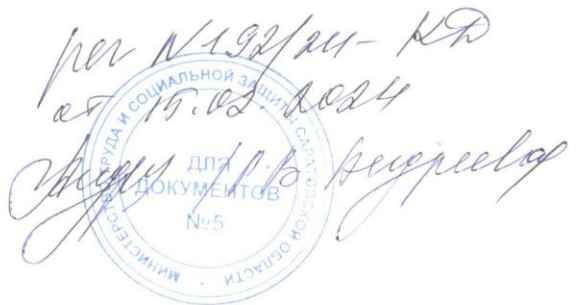 рег N 192/24-КД
от 15.02.2024
МИНИСТЕРСТВО ТРУДА И СОЦИАЛЬНОЙ ЗАЩИТЫ САРАТОВСКОЙ ОБЛАСТИ
ДЛЯ
ДОКУМЕНТОВ
№5
Андреева